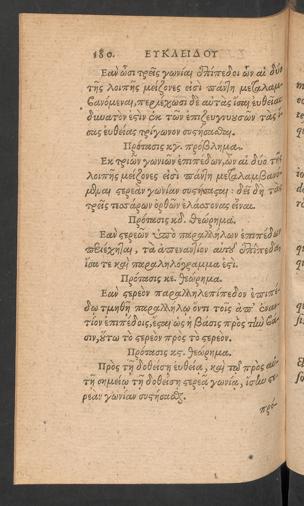 180. ΕΥΚΛΕΙΔΟΥ
Ἐὰν ὦσι τρεῖς γωνίαι ἐπίπεδοι ὧν αἱ δύο
τῆς λοιπῆς μείζονες εἰσὶ πάντῃ μεταλαμ-
βανόμεναι, περιέχωσι δὲ αὐτὰς ἴσαι εὐθεῖαι
δυνατὸν ἐστὶν ἐκ τῶν ἐπιζευγνυουσῶν τὰς ἴ-
σας εὐθείας τρίγωνον συστήσασθαι.
Πρότασις κγ. πρόβλημα.
Ἐκ τριῶν γωνιῶν ἐπιπέδων, ὧν αἱ δύο τῆς
λοιπῆς μείζονες εἰσὶ πάντῃ μεταλαμβανό-
μεναι στερεὰν γωνίαν συστήσασθαι: δεῖ δὴ τὰς
τρεῖς τεσσάρων ὀρθῶν ἐλάσσονας εἶναι.
Πρότασις κδ. θεώρημα.
Ἐὰν στερεὸν ὑπὸ παραλλήλων ἐπιπέδων
περιέχηται, τὰ ἀπεναντίον αὐτοῦ ἐπίπεδα
ἴσα τε καὶ παραλληλόγραμμα ἐστί.
Πρότασις κε. θεώρημα.
Ἐὰν στερεὸν παραλληλεπίπεδον ἐπιπέ-
δῳ τμηθῇ παραλλήλῳ ὄντι τοῖς ἀπ᾽ ἐναν-
τίον ἐπιπέδοις, ἔσται ὡς ἡ βάσις πρὸς τὴν βά-
σιν, οὕτω τὸ στερεὸν πρὸς τὸ στερεόν.
Πρότασις κς. θεώρημα.
Πρὸς τῇ δοθείσῃ εὐθείᾳ, καὶ τῷ πρὸς αὐ-
τῇ σημείῳ τῇ δοθείσῃ στερεᾷ γωνίᾳ, ἴσην στε-
ρεὰν γωνίαν συστήσασθαι.
πρό-